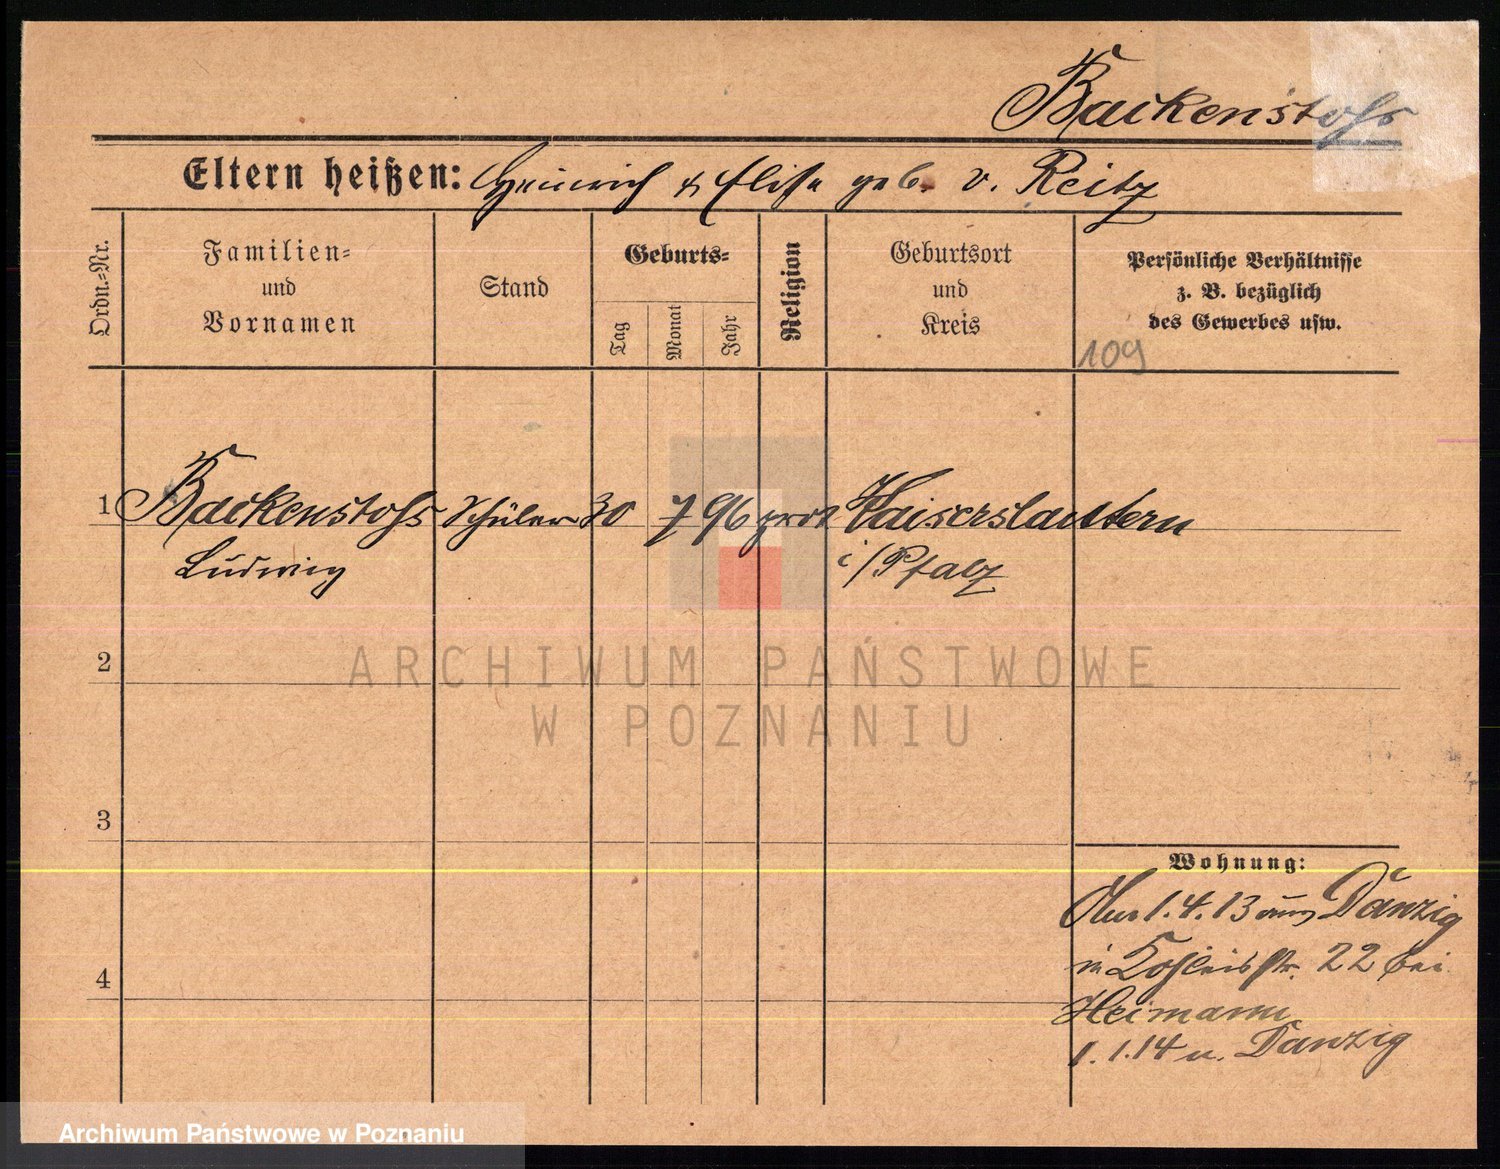 Backenstohs
Eltern heißen: Heinrich & Elise geb. v. Reitz
Ordn.-Nr.
Familien-
und
Vornamen
Stand
Geburts-
Tag
Monat
Jahr
Religion
Geburtsort
und
Kreis
Persönliche Verhältnisse
z. B. bezüglich
des Gewerbes usw.
109
1 Backenstohs Schüler 30 7 96 prot Kaiserslautern
Ludwig i/Pfalz
2
ARCHIWUM PAŃSTWOWE
W POZNANIU
3
Wohnung:
1.4.13 aus Danzig
in 22 bei
4
Heimann
1.1.14 n. Danzig
Archiwum Państwowe w Poznaniu